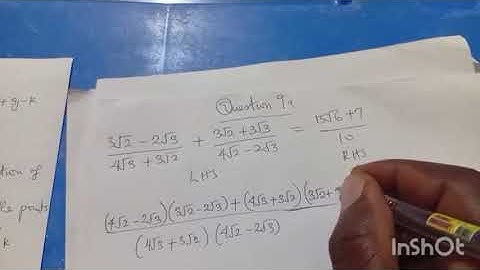 + 9j-k
tion of
le points
k
Question 9,
3√2 - 2√3 / 4√3 + 3√2 + 3√2 + 3√3 / 4√2 - 2√3 = 15√6 + 7 / 10
LHS
RHS
(4√2 - 2√3)(3√2 - 2√3) + (4√3 + 3√2)(3√2 +
(4√3 + 3√2) (4√2 - 2√3)
InShOt